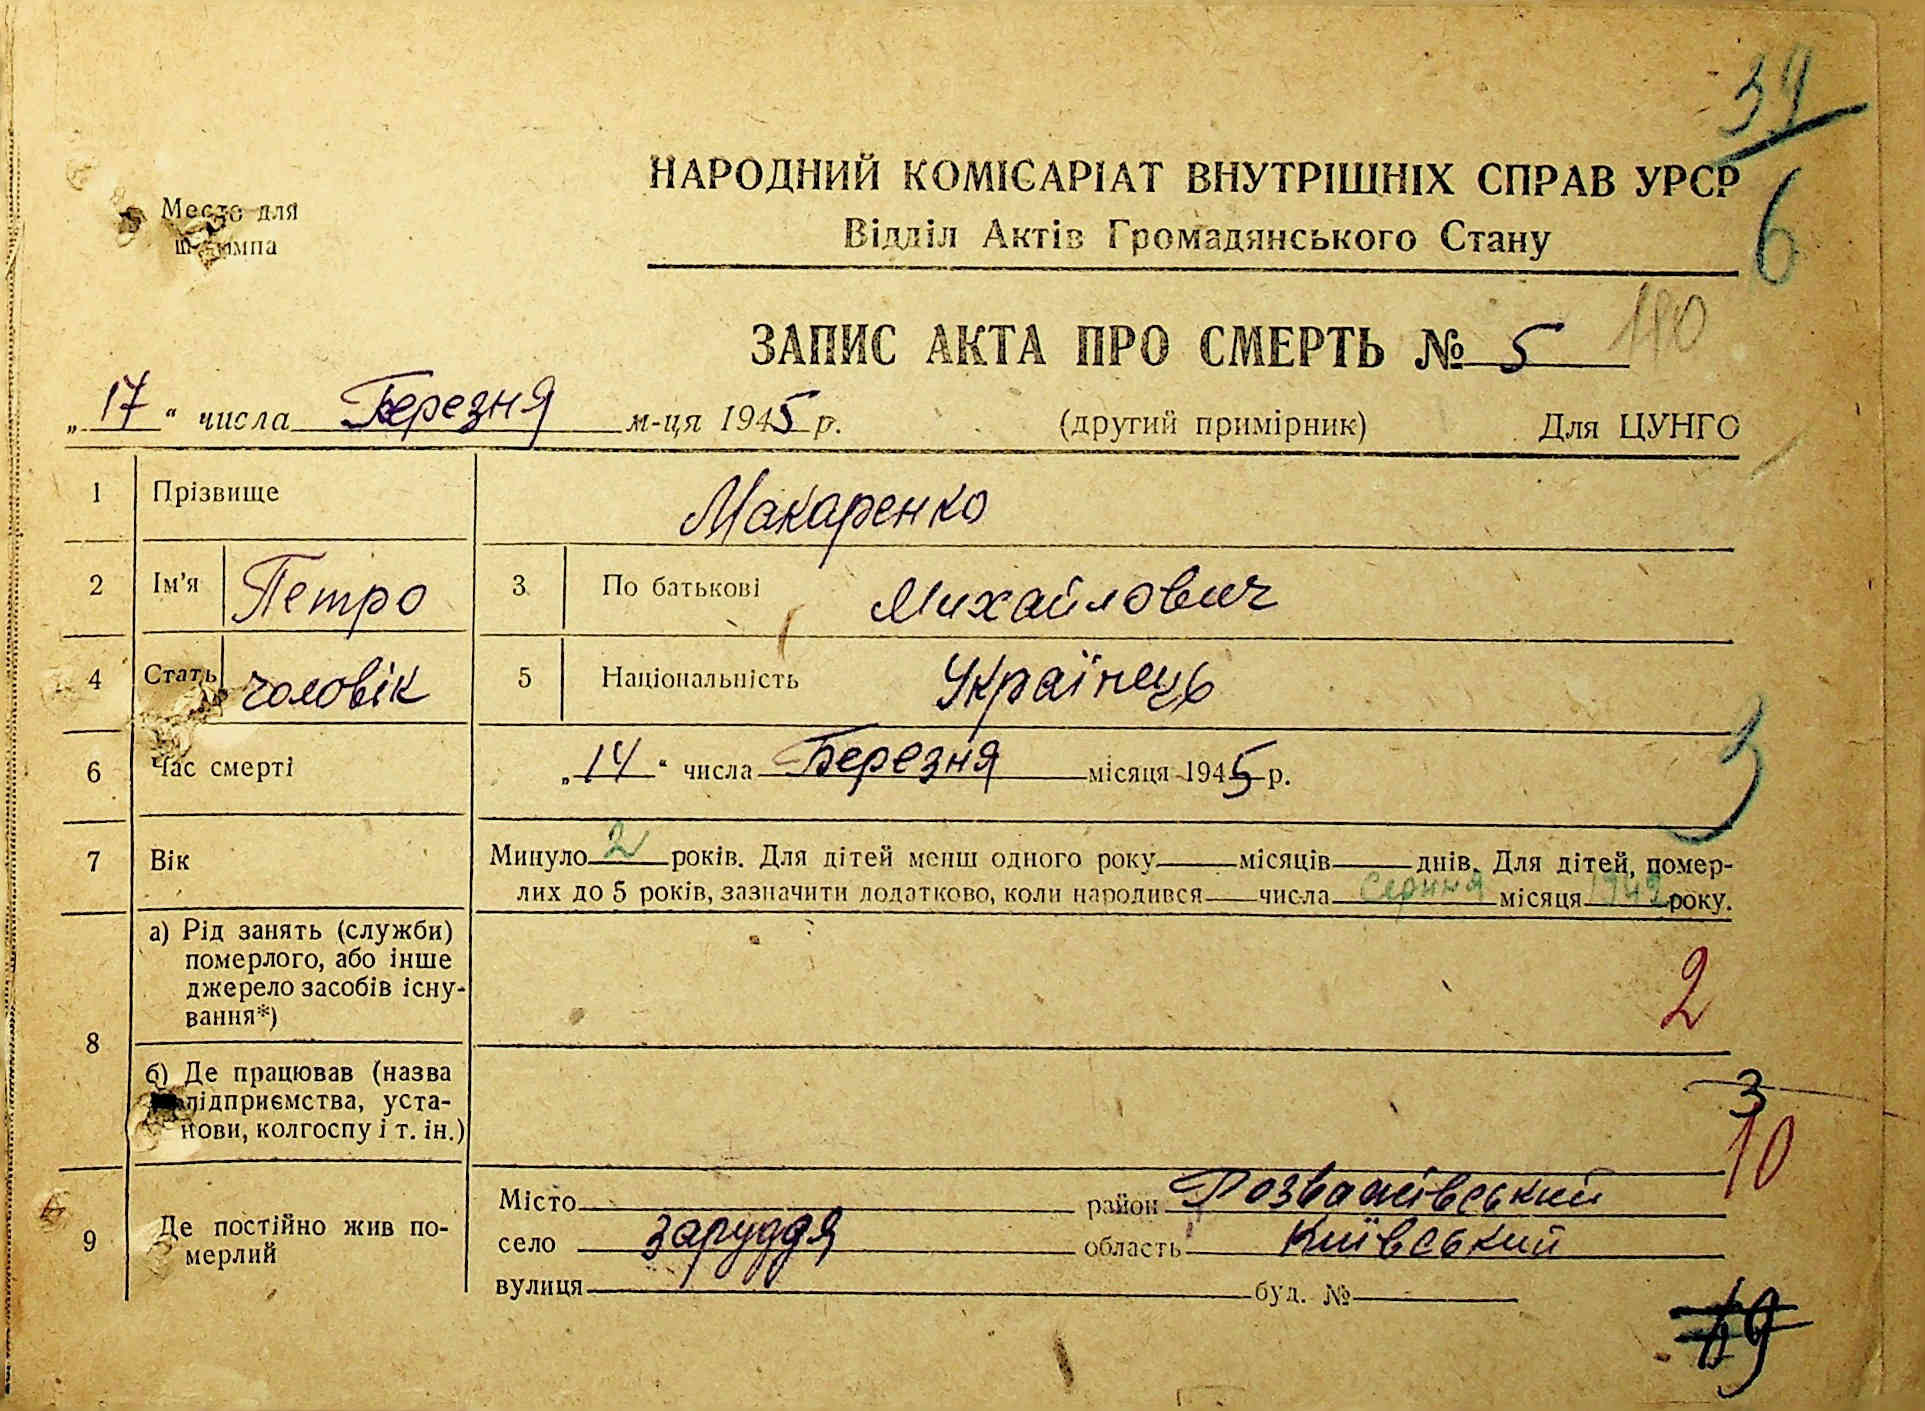 39
6
Место для
штампа
НАРОДНИЙ КОМІСАРІАТ ВНУТРІШНІХ СПРАВ УРСР
Відділ Актів Громадянського Стану
ЗАПИС АКТА ПРО СМЕРТЬ № 5
„17“ числа Березня м-ця 1945 р. (другий примірник) Для ЦУНГО
1 Прізвище Макаренко
2 Ім'я Петро 3 По батькові Михайлович
4 Стать чоловік 5 Національність Українець
6 Час смерті „14“ числа Березня місяця 1945 р.
7 Вік Минуло 2 років. Для дітей менш одного року місяців днів. Для дітей, помер-
лих до 5 років, зазначити додатково, коли народився числа Серпня місяця 1942 року.
8 а) Рід занять (служби)
померлого, або інше
джерело засобів існу-
вання*)
2
б) Де працював (назва
підприємства, уста-
нови, колгоспу і т. ін.)
3
10
9 Де постійно жив по-
мерлий
Місто район Розважівський
село Заруддя область Київський
вулиця буд. №